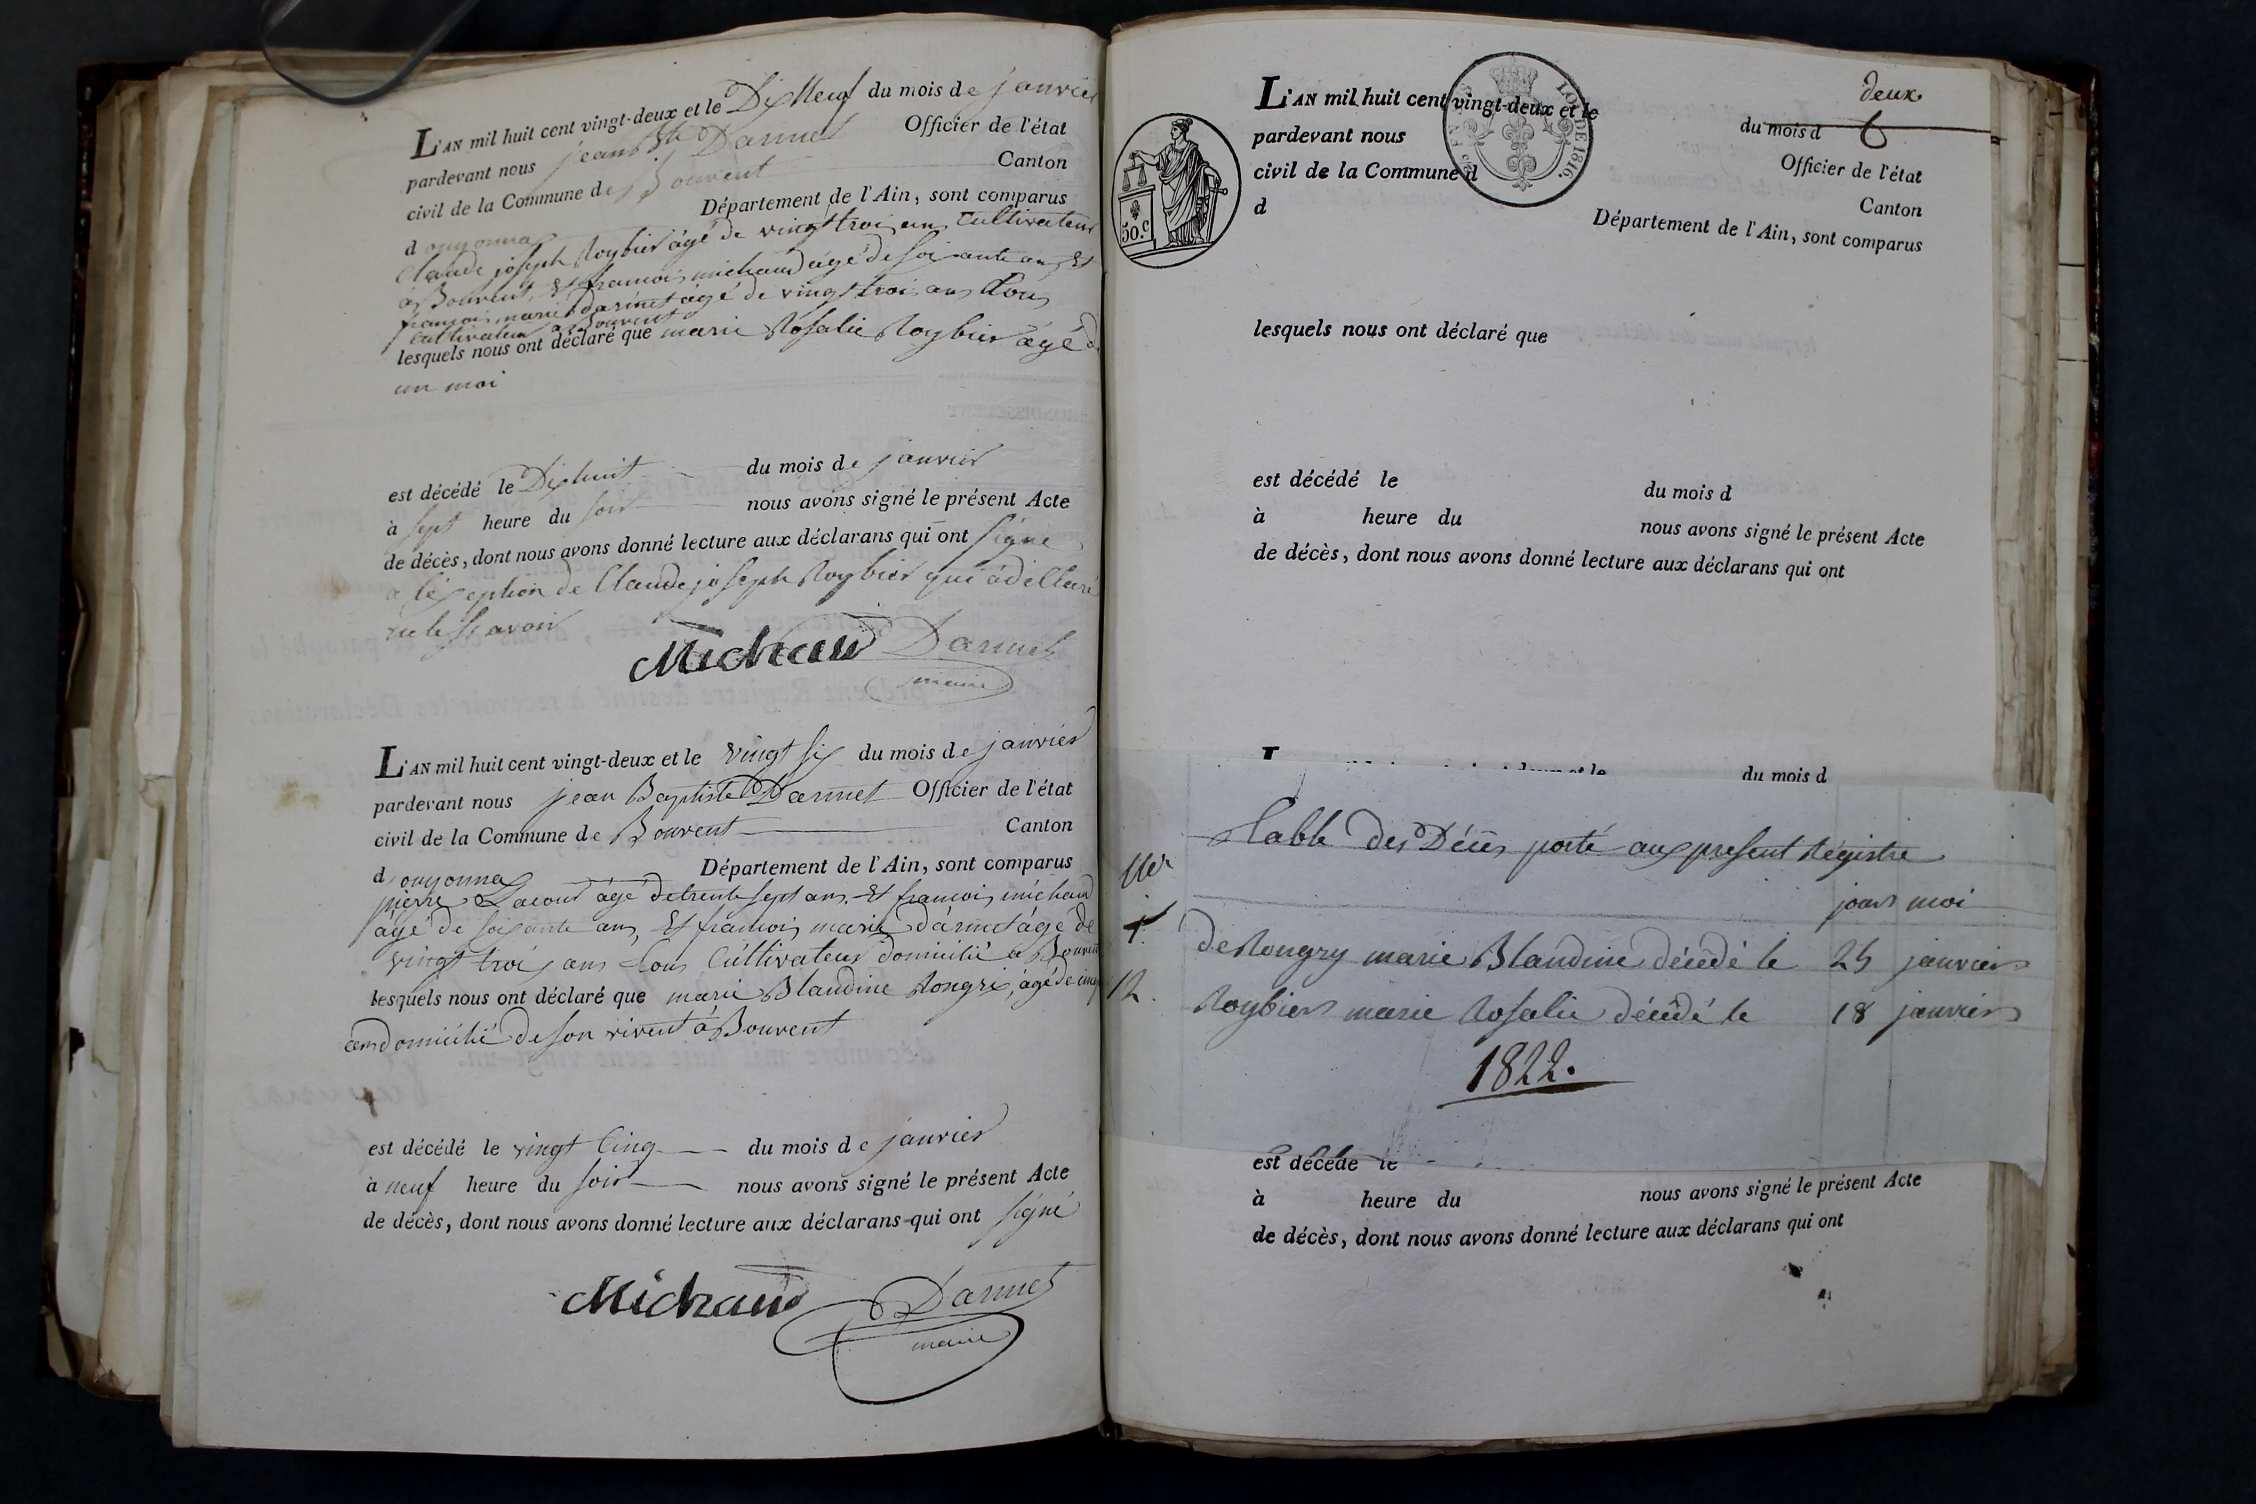 L'AN mil huit cent vingt-deux et le Dix Neuf du mois de janvier
pardevant nous jean Bte Darmet Officier de l'état
civil de la Commune de Bouvent Canton
d'oyonna Département de l'Ain, sont comparus
Claude joseph Roybier âgé de vingt troi an Cultivateur
à Bouvent, Et francois michaud âgé de soixante ans Et
francois marie darmet âgé de vingt trois ans Tous
Cultivateur à Bouvent
lesquels nous ont déclaré que marie Rosalie Roybier âgé de
un moi
est décédé le Dix huit du mois de janvier
à sept heure du soir nous avons signé le présent Acte
de décès, dont nous avons donné lecture aux déclarans qui ont signé
a l'éxeption de Claude joseph Roybier qui à déllaré
ne le scavoir
Michaud Darmet
maire
L'AN mil huit cent vingt-deux et le vingt six du mois de janvier
pardevant nous jean Baptiste Darmet Officier de l'état
civil de la Commune de Bouvent Canton
d'oyonna Département de l'Ain, sont comparus
pierre Lacour âgé de trente sept ans Et francois michaud
âgé de soixante ans, Et francois marie darmet âgé de
vingt trois ans Tous Cultivateur domicilié à Bouvent
lesquels nous ont déclaré que marie Blandine Rongri, âgé de cinq
ans domicilié de son vivent à Bouvent
est décédé le vingt Cinq du mois de janvier
à neuf heure du soir nous avons signé le présent Acte
de décès, dont nous avons donné lecture aux déclarans qui ont signé
Michaud Darmet
maire
deux
L'AN mil huit cent vingt-deux et le du mois d
pardevant nous Officier de l'état
civil de la Commune d Canton
d Département de l'Ain, sont comparus
LOI DE 1816.
50.c
lesquels nous ont déclaré que
est décédé le du mois d
à heure du nous avons signé le présent Acte
de décès, dont nous avons donné lecture aux déclarans qui ont
du mois d
Table des Décès porté aux present Régistre
jours moi
1. deRongry marie Blandine décédé le 25 janvier
12. Roybier marie Rosalie décédé le 18 janvier
1822.
est décédé le
à heure du nous avons signé le présent Acte
de décès, dont nous avons donné lecture aux déclarans qui ont